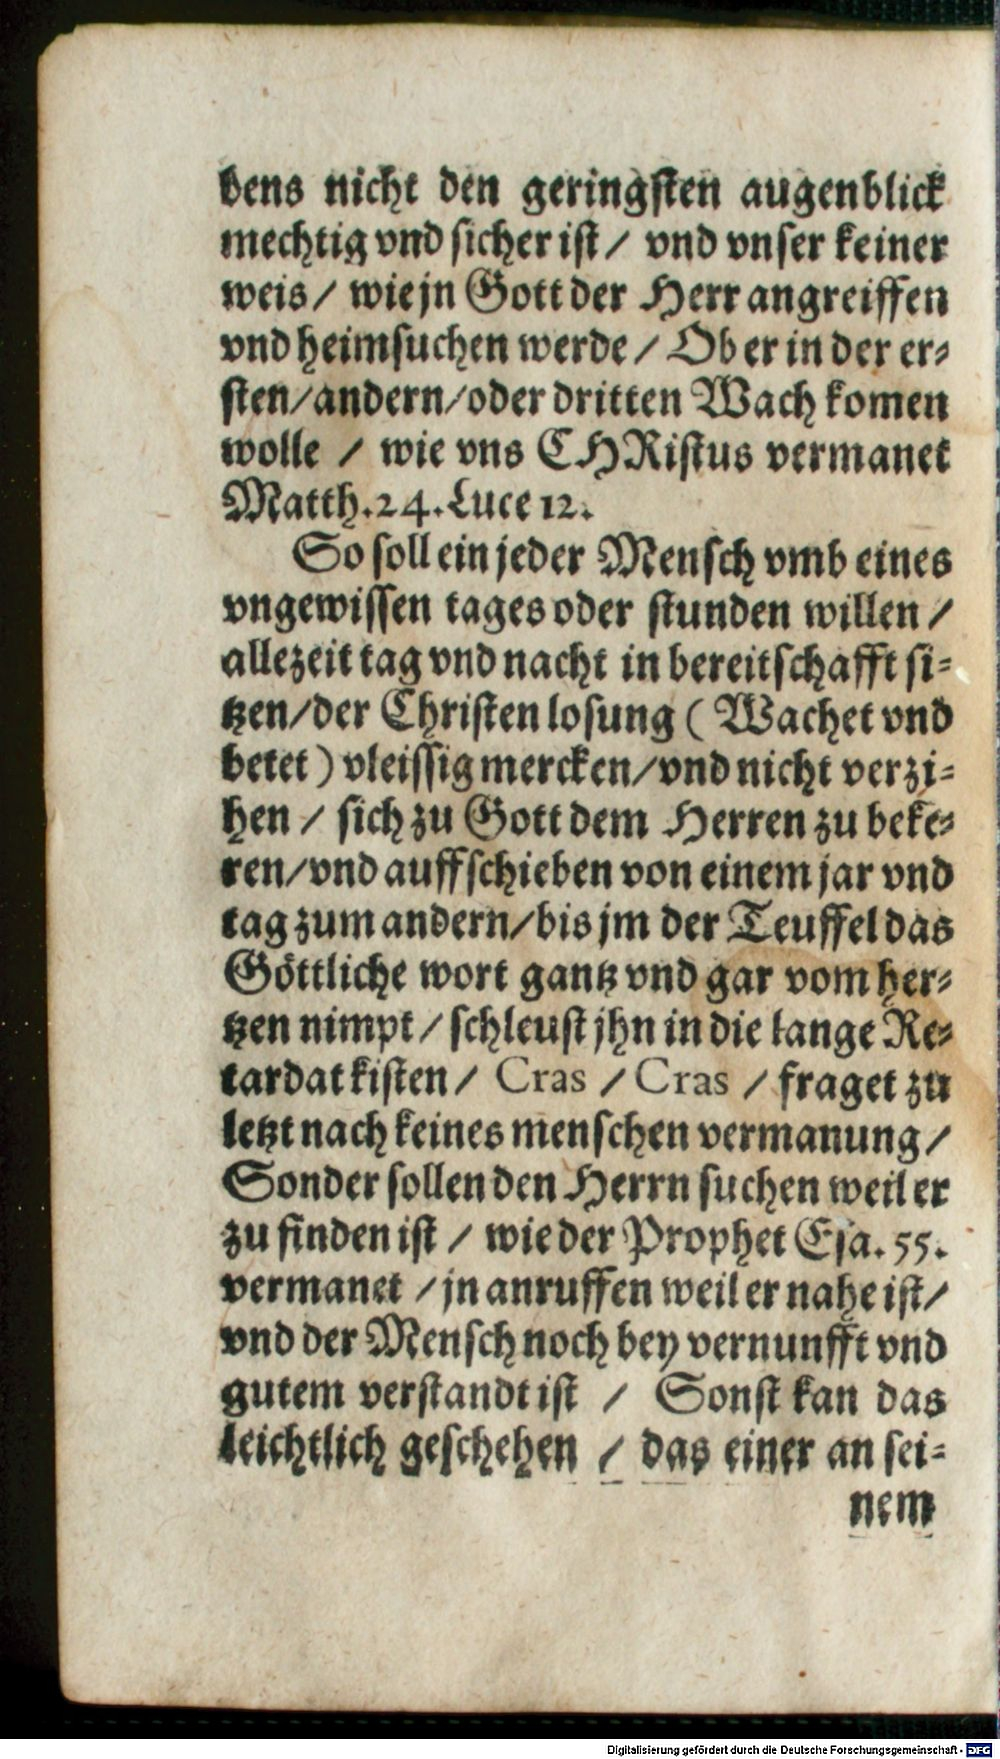 bens nicht den geringsten augenblick
mechtig vnd sicher ist / vnd vnser keiner
weis / wie jn Gott der Herr angreiffen
vnd heimsuchen werde / Ob er in der er⸗
sten/andern/oder dritten Wach komen
wolle / wie vns CHRistus vermanet
Matth.24. Luce 12.
So soll ein jeder Mensch vmb eines
vngewissen tages oder stunden willen /
allezeit tag vnd nacht in bereitschafft si⸗
tzen/der Christen losung ( Wachet vnd
betet ) vleissig mercken/vnd nicht verzi⸗
hen / sich zu Gott dem Herren zu beke⸗
ren/vnd auffschieben von einem jar vnd
tag zum andern/bis jm der Teuffel das
Göttliche wort gantz vnd gar vom her⸗
tzen nimpt / schleust jhn in die lange Re⸗
tardat kisten / Cras / Cras / fraget zu
letzt nach keines menschen vermanung /
Sonder sollen den Herrn suchen weil er
zu finden ist / wie der Prophet Esa. 55.
vermanet / jn anruffen weil er nahe ist/
vnd der Mensch noch bey vernunfft vnd
gutem verstandt ist / Sonst kan das
leichtlich geschehen / das einer an sei⸗
nem
Digitalisierung gefördert durch die Deutsche Forschungsgemeinschaft - DFG